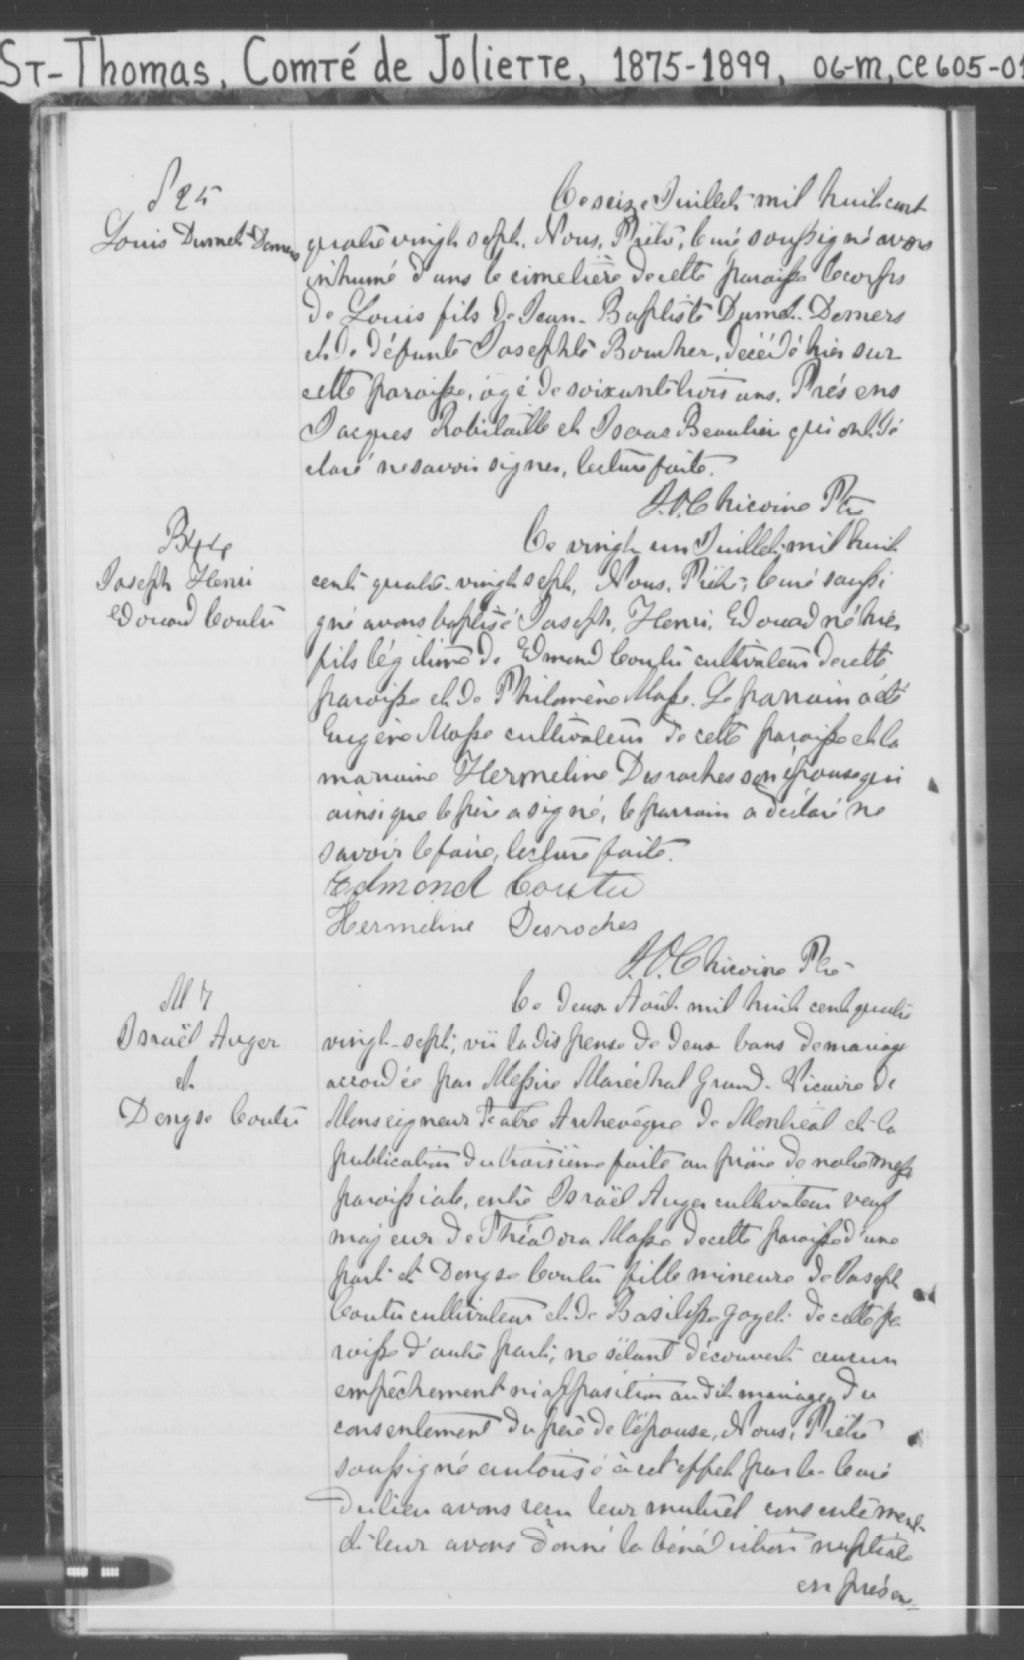 ST-Thomas, Comté de Joliette, 1875-1899, 06-M, CE605-01
S 25
Louis Dumet Demers
Ce seize Juillet mil huit cent
quatre vingt sept, Nous, Prêtre, Curé soussigné avons
inhumé dans le cimetière de cette paroisse le corps
de Louis fils de Jean-Baptiste Dumet-Demers
et de défunte Josephte Boucher, décédé hier sur
cette paroisse, âgé de soixante trois ans. Présens
Jacques Robitaille et Beaulieu qui ont dé
claré ne savoir signer, lecture faite.
Chicoine Ptre
B44
Joseph Henri
Edouard Coutu
Ce vingt un Juillet mil huit
cent quatre-vingt sept, Nous, Prêtre, Curé soussi
gné avons baptisé Joseph, Henri, Edouard né hier
fils légitime de Edmond Coutu cultivateur de cette
paroisse et de Philomène Masse. Le parrain a été
Eugène Masse cultivateur de cette paroisse et la
marraine Hermeline Desroches son épouse qui
ainsi que le père a signé, le parrain a déclaré ne
savoir le faire, lecture faite.
Edmond Coutu
Hermeline Desroches
Chicoine Ptre
M 7
Israël Auger
et
Denyse Coutu
Ce deux Août mil huit cent quatre
vingt-sept, vû la dispense de deux bans de mariage
accordée par Messire Maréchal Grand-Vicaire de
Monseigneur Fabre Archevêque de Montréal et la
publication du troisième faite au prône de notre messe
paroissiale, entre Israël Auger cultivateur veuf
majeur de Théodora Masse de cette paroisse d'une
part et Denyse Coutu fille mineure de Joseph
Coutu cultivateur et de Basilisse Goyet de cette pa
roisse d'autre part; ne s'étant découvert aucun
empêchement ni opposition au dit mariage, du
consentement du père de l'épouse, Nous, Prêtre
soussigné autorisé à cet effet par le Curé
du lieu avons reçu leur mutuel consentement
et leur avons donné la bénédiction nuptiale
en présen-